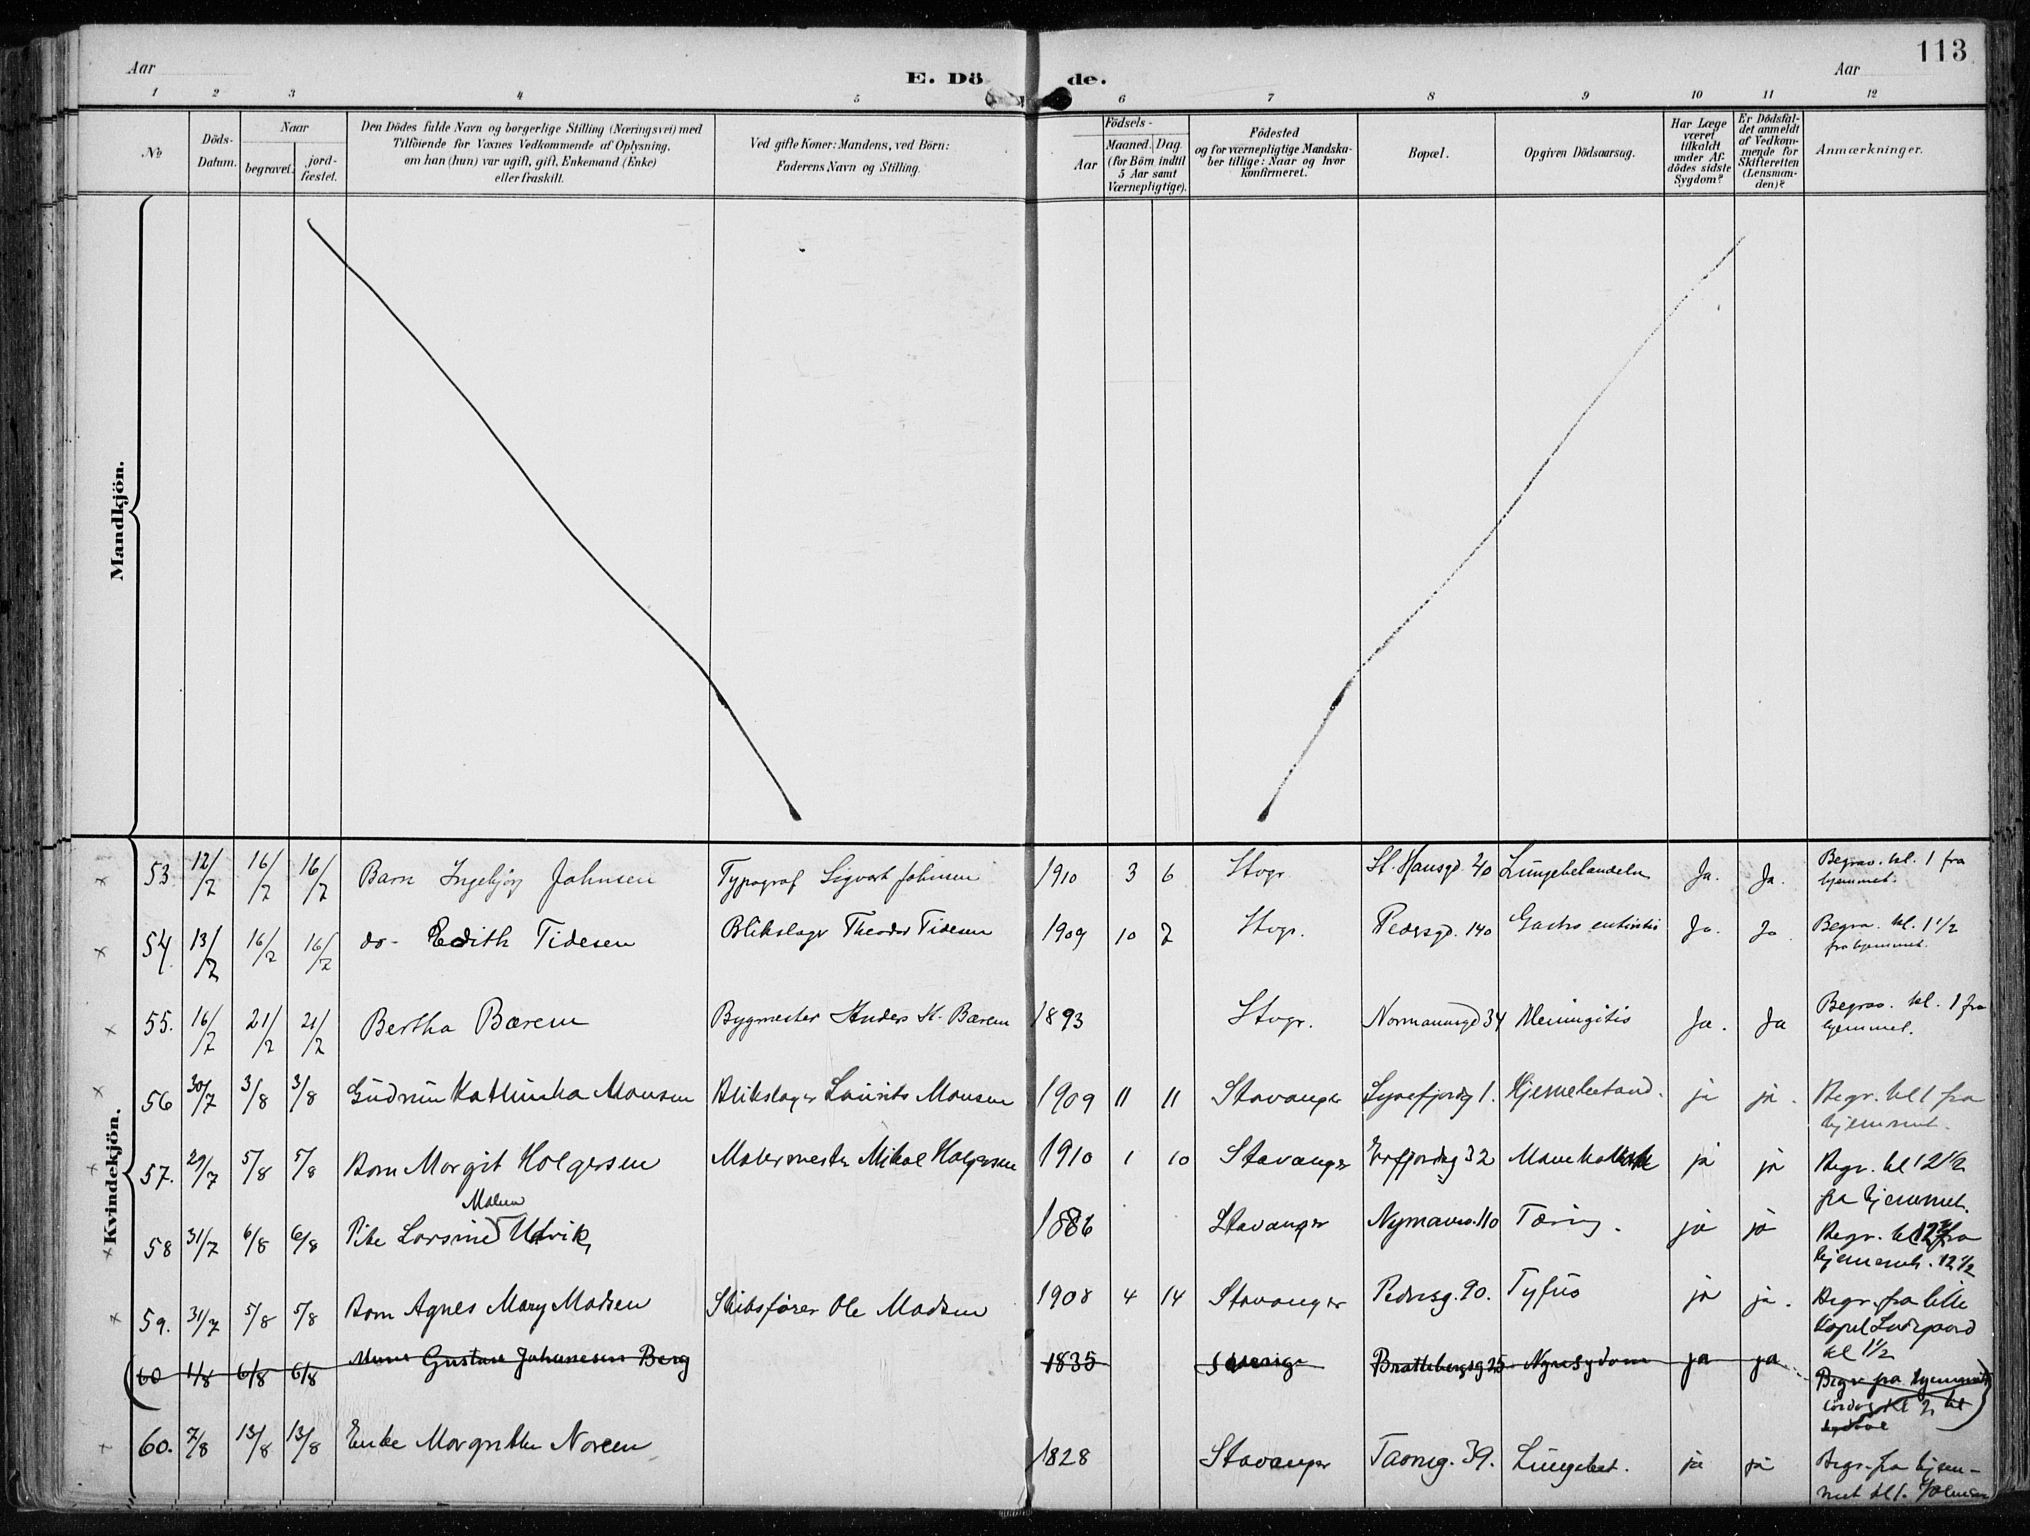 113
Aar
E. Dö de.
Aar
1 2 3 4 5 6 7 8 9 10 11 12
No
Döds-
Datum.
Naar
begravet.
jord-
fæstet.
Den Dödes fulde Navn og borgerlige Stilling (Næringsvei) med
Tilföiende for Voxnes Vedkommende af Oplysning,
om han (hun) var ugift, gift, Enkemand (Enke)
eller fraskilt.
Ved gifte Koner: Mandens, ved Börn:
Faderens Navn og Stilling.
Aar
Födsels-
Maaned. Dag
(for Börn indtil
5 Aar samt
Værnepligtige).
Födested
og for værnepligtige Mandska-
ber tillige: Naar og hvor
konfirmeret.
Bopæl.
Opgiven Dödsaarsag.
Har Læge
været
tilkaldt
under Af-
dödes sidste
Sygdom?
Er Dödsfal-
det anmeldt
af Vedkom-
mende for
Skifteretten
(Lensman-
den)?
Anmærkninger.
Mandkjön.
Kvindekjön.
53 12/7 16/7 16/7 Barn Ingebjörg Johnsen Typograf Sigvart Johnsen 1910 3 6 Stvgr. St. Hansgd. 40 Ja. Ja. Begrav. kl. 1 fra
hjemmet.
54. 13/7 16/7 16/7 do- Edith Tidesen Blikslager Theodor Tidesen 1909 10 7 Stvgr. Pedersgd. 140 Gastro enteritis Ja. Ja Begrav. kl. 1 1/2
fra hjemmet.
55. 16/7 21/7 21/7 Bertha Bærem Bygmester Anders H. Bærem 1893 Stvgr. Normannsgd 34 Meningitis Ja. Ja Begrav. kl. 1 fra
hjemmet.
56 30/7 3/8 3/8 Gudrun Kathinka Monsen Blikslager Laurits Monsen 1909 11 11 Stavanger Lysefjordg 1. ja ja. Begr. kl 1 fra
hjemmet.
57. 29/7 5/8 5/8 Barn Margit Holgersen Malermester Mikal Holgersen 1910 1 10 Stavanger Erfjordsg 32 ja ja Begr. kl 12 1/2
fra hjemmet.
58 31/7 6/8 6/8 Pike Larsine Utvik, 1886 Stavanger Tæring. ja ja Begr. kl fra
hjemmet. 12 1/2
59. 31/7 5/8 5/8 Barn Agnes Mary Madsen Skibsförer Ole Madsen 1908 4 14 Stavanger Pedersg. 90. Tyfus ja ja. Begr. fra lille
kapel
kl 1 1/2
60 1/8 6/8 6/8 Gustava Johannesen Berg 1835 Sverige Brattebergsg 25 Nyresygdom ja ja Begr fra hjemmet
60. 7/8 13/8 13/8 Enke Margrethe Noreen 1828 Stavanger 39. Lungebet. ja ja Begr. fra hjem-
met kl 1.